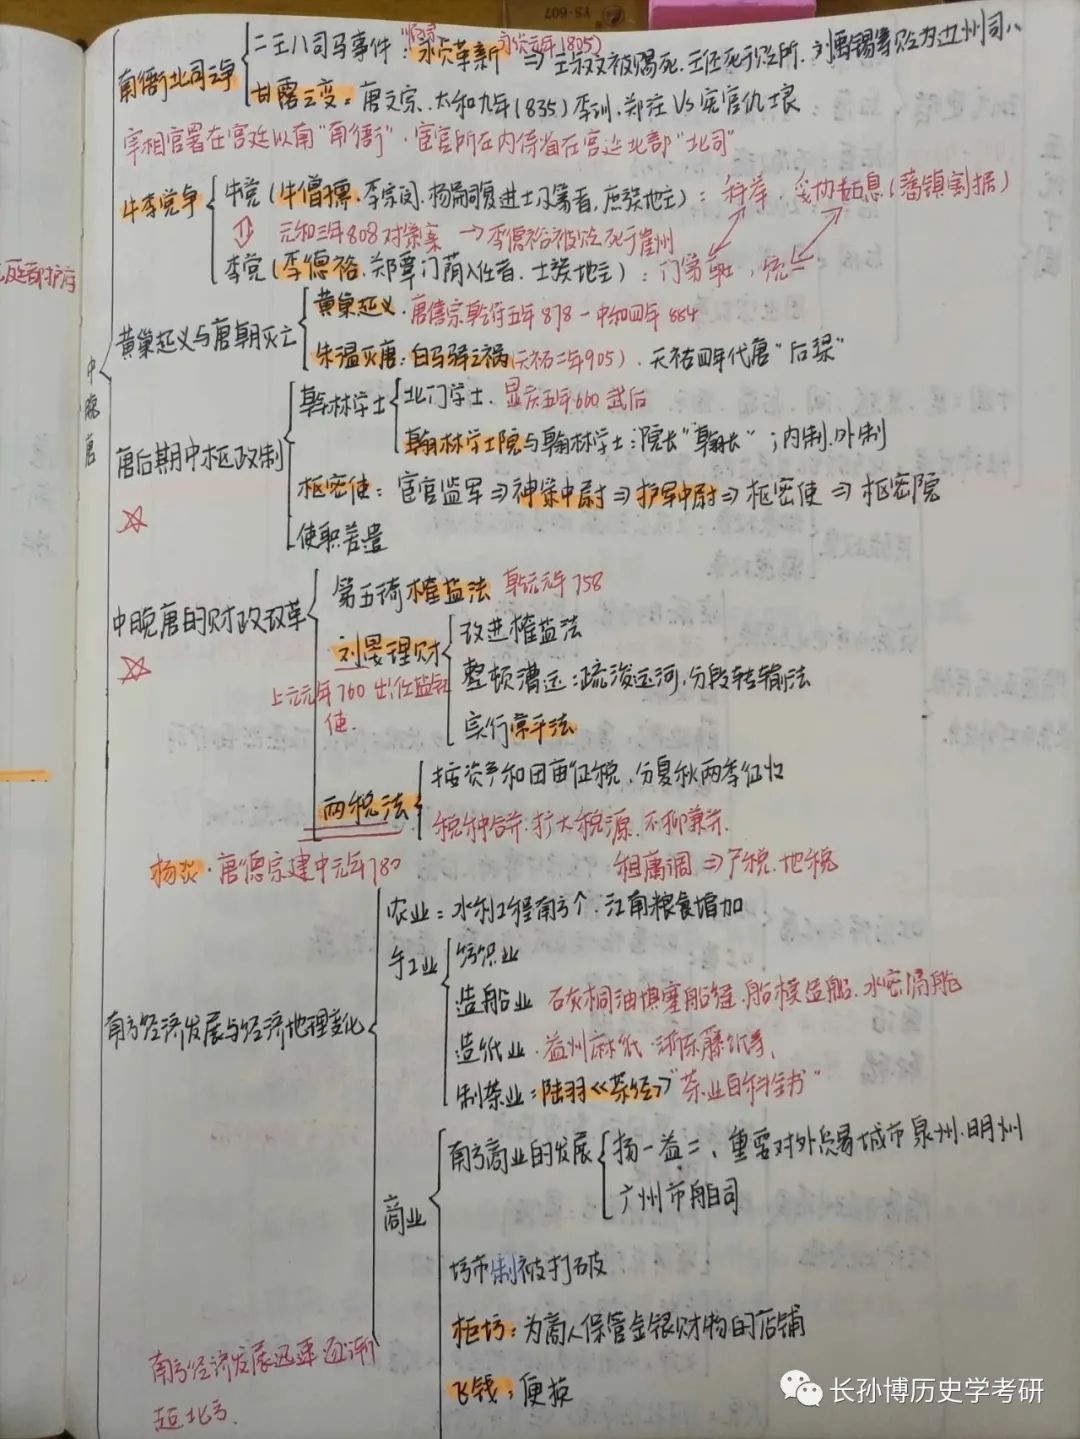 YS-607
中晚唐
南衙北司之争
二王八司马事件：永贞革新 永贞元年(805) ⇒ 王叔文被赐死.王伾死于贬所.刘禹锡等贬为边州司八
甘露之变：唐文宗.太和九年(835) 李训.郑注 Vs 宦官仇士良
宰相官署在宫廷以南"南衙"·宦官所在内侍省在宫廷北部"北司"
牛李党争
牛党(牛僧孺.李宗闵.杨嗣复进士及第者,庶族地主)：科举.妥协姑息(藩镇割据)
元和三年808对策案 → 李德裕被贬死于崖州
李党(李德裕.郑覃门荫入仕者.士族地主)：门第,统一
黄巢起义与唐朝灭亡
黄巢起义.唐僖宗乾符五年878－中和四年884
朱温灭唐：白马驿之祸(天祐二年905).天祐四年代唐"后梁"
唐后期中枢政制
翰林学士
北门学士.显庆五年660 武后
翰林学士院与翰林学士：院长"翰长"；内制.外制
枢密使：宦官监军⇒神策中尉⇒护军中尉⇒枢密使⇒枢密院
使职差遣
中晚唐的财政改革
第五琦榷盐法 乾元元年758
刘晏理财
上元元年760 出任盐铁使.
改进榷盐法
整顿漕运：疏浚运河,分段转输法
实行常平法
两税法
按资产和田亩征税,分夏秋两季征收
税种合并.扩大税源.不抑兼并.
杨炎·唐德宗建中元年780
租庸调⇒户税.地税
南方经济发展与经济地理变化
农业：水利工程南方个.江南粮食增加
手工业
纺织业
造船业 石灰桐油填塞船缝.船模造船.水密隔舱
造纸业.益州麻纸.浙东藤纸等,
制茶业：陆羽《茶经》"茶业百科全书"
商业
南方商业的发展
扬一益二、重要对外贸易城市泉州.明州
广州市舶司
坊市制被打破
柜坊：为商人保管金银财物的店铺
飞钱：便换
南方经济发展迅速逐渐
超北方.
长孙博历史学考研